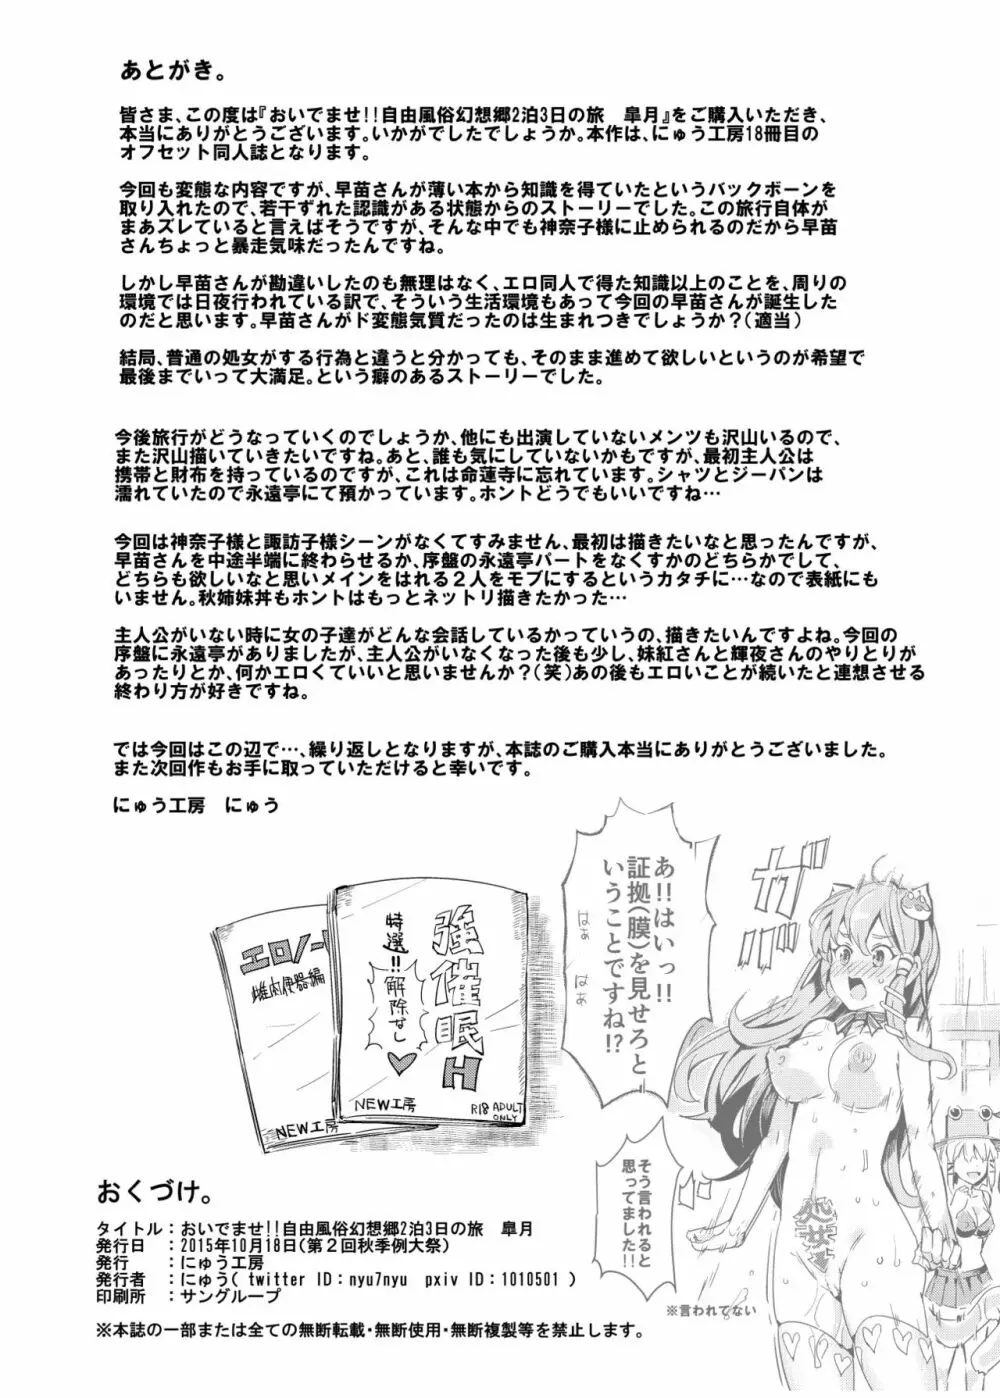 あとがき。
皆さま、この度は『おいでませ!!自由風俗幻想郷2泊3日の旅　皐月』をご購入いただき、
本当にありがとうございます。いかがでしたでしょうか。本作は、にゅう工房18冊目の
オフセット同人誌となります。
今回も変態な内容ですが、早苗さんが薄い本から知識を得ていたというバックボーンを
取り入れたので、若干ずれた認識がある状態からのストーリーでした。この旅行自体が
まあズレていると言えばそうですが、そんな中でも神奈子様に止められるのだから早苗
さんちょっと暴走気味だったんですね。
しかし早苗さんが勘違いしたのも無理はなく、エロ同人で得た知識以上のことを、周りの
環境では日夜行われている訳で、そういう生活環境もあって今回の早苗さんが誕生した
のだと思います。早苗さんがド変態気質だったのは生まれつきでしょうか？(適当)
結局、普通の処女がする行為と違うと分かっても、そのまま進めて欲しいというのが希望で
最後までいって大満足。という癖のあるストーリーでした。
今後旅行がどうなっていくのでしょうか、他にも出演していないメンツも沢山いるので、
また沢山描いていきたいですね。あと、誰も気にしていないかもですが、最初主人公は
携帯と財布を持っているのですが、これは命蓮寺に忘れています。シャツとジーパンは
濡れていたので永遠亭にて預かっています。ホントどうでもいいですね…
今回は神奈子様と諏訪子様シーンがなくてすみません、最初は描きたいなと思ったんですが、
早苗さんを中途半端に終わらせるか、序盤の永遠亭パートをなくすかのどちらかでして、
どちらも欲しいなと思いメインをはれる２人をモブにするというカタチに…なので表紙にも
いません。秋姉妹丼もホントはもっとネットリ描きたかった…
主人公がいない時に女の子達がどんな会話しているかっていうの、描きたいんですよね。今回の
序盤に永遠亭がありましたが、主人公がいなくなった後も少し、妹紅さんと輝夜さんのやりとりが
あったりとか、何かエロくていいと思いませんか？(笑)あの後もエロいことが続いたと連想させる
終わり方が好きですね。
では今回はこの辺で…、繰り返しとなりますが、本誌のご購入本当にありがとうございました。
また次回作もお手に取っていただけると幸いです。
にゅう工房　にゅう
ガバッ
あ!!はいっ!!
証拠(膜)を見せろと
いうことですね!?
はぁ
はぁ
そう言われると
思ってました!!
※言われてない
処女
エロノート
雌肉便器編
NEW工房
強催眠H
特選!!
解除なし
NEW工房
R18 ADULT
ONLY
おくづけ。
タイトル：おいでませ!!自由風俗幻想郷2泊3日の旅　皐月
発行日　：2015年10月18日(第２回秋季例大祭)
発行　　：にゅう工房
発行者　：にゅう( twitter ID：nyu7nyu　pxiv ID：1010501 )
印刷所　：サングループ
※本誌の一部または全ての無断転載・無断使用・無断複製等を禁止します。